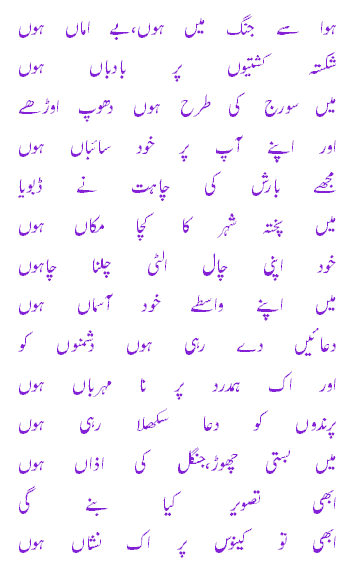 ہوا سے جنگ میں ہوں،بے اماں ہوں
شکستہ کشتیوں پر بادباں ہوں
میں سورج کی طرح ہوں دھوپ اوڑھے
اور اپنے آپ پر خود سائباں ہوں
مجھے بارش کی چاہت نے ڈبویا
میں پختہ شہر کا کچا مکاں ہوں
خود اپنی چال الٹی چلنا چاہوں
میں اپنے واسطے خود آسماں ہوں
دعائیں دے رہی ہوں دشمنوں کو
اور اک ہمدرد پر نا مہرباں ہوں
پرندوں کو دعا سکھلا رہی ہوں
میں بستی چھوڑ،جنگل کی اذاں ہوں
ابھی تصویر کیا بنے گی
ابھی تو کینوس پر اک نشاں ہوں